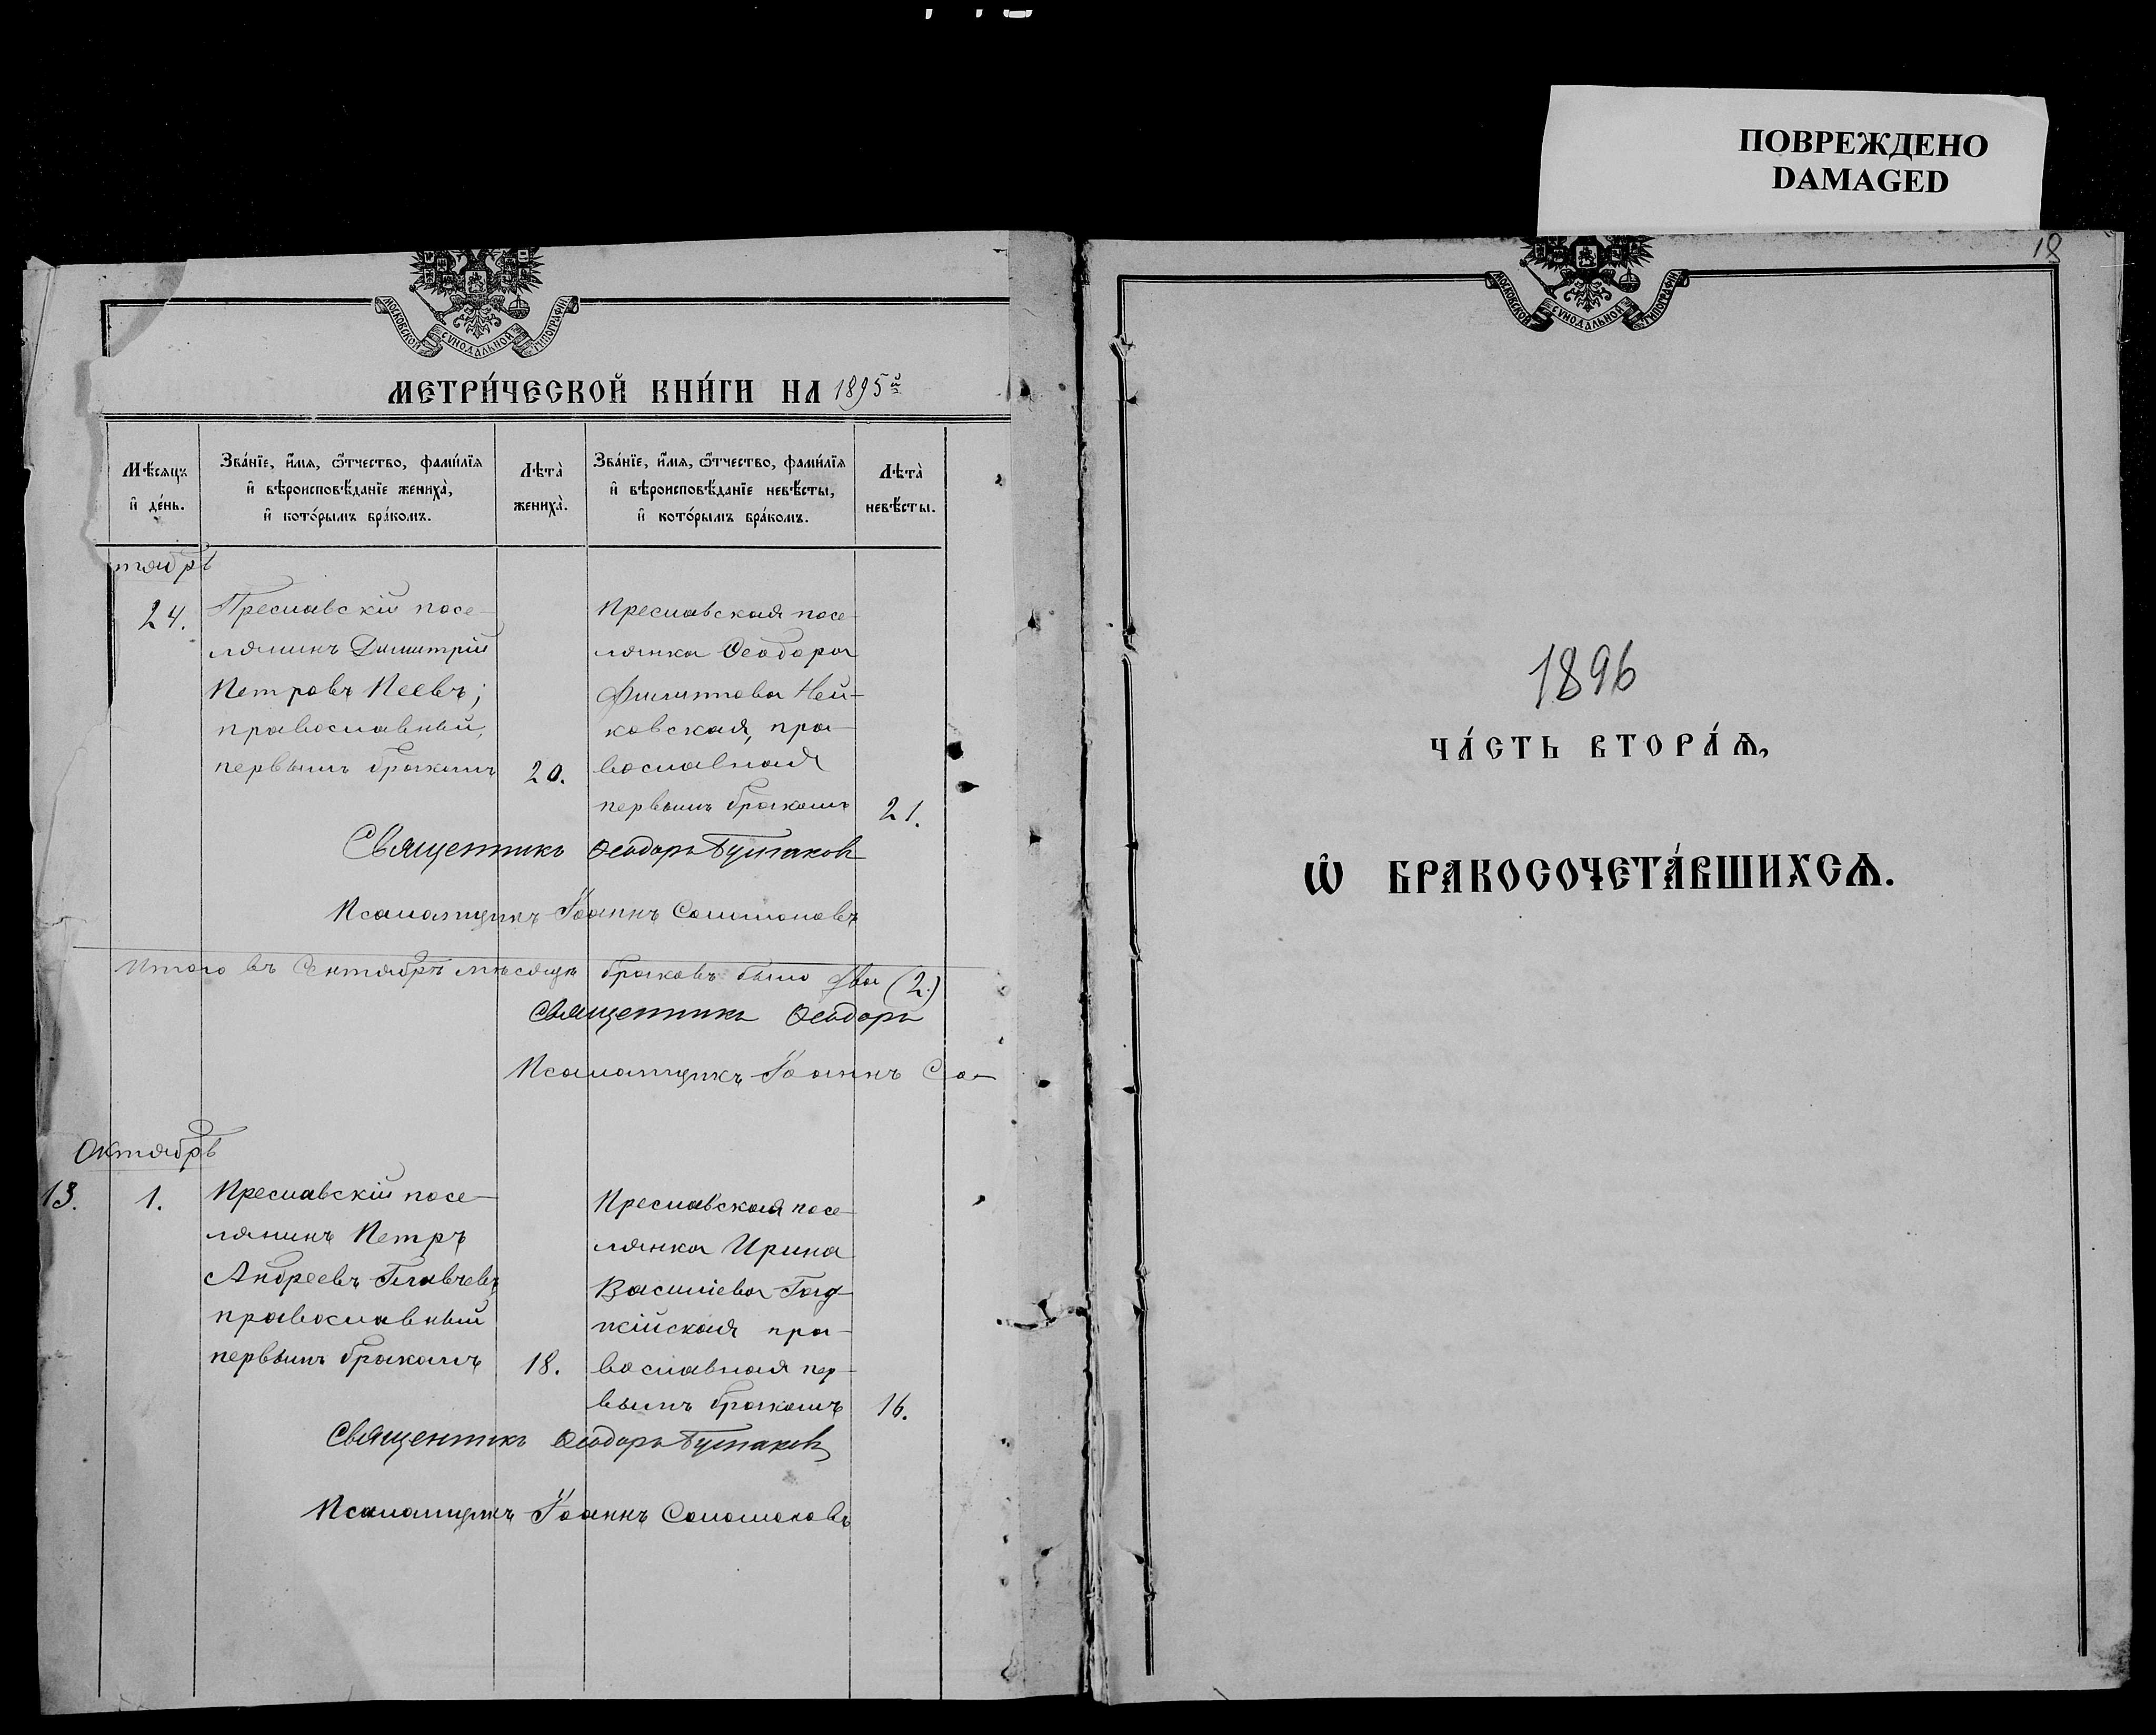 ПОВРЕЖДЕНО
DAMAGED
МОСКОВСКОЙ СѴНОДАЛЬНОЙ ТИПОГРАФІИ
МЕТРИ́ЧЕСКОЙ КНИ́ГИ НА 1895й
Мѣ́сяцъ и҆ де́нь.
Зва́нїе, и҆́мѧ, ѻ҆́тчество, фами́лїѧ
и҆ вѣроисповѣ́данїе жениха̀,
и҆ кото́рымъ бра́комъ.
Лѣта̀ жениха̀.
Зва́нїе, и҆́мѧ, ѻ҆́тчество, фами́лїѧ
и҆ вѣроисповѣ́данїе невѣ́сты,
и҆ кото́рымъ бра́комъ.
Лѣта̀ невѣ́сты.
тябрь
24.
Преславскій посе-
лянинъ Димитрій
Петровъ Пеевъ;
православный,
первымъ бракомъ
20.
Преславская посе-
лянка Ѳеодора
Филиппова Ней-
ковская, пра-
вославная
первымъ бракомъ
21.
Священникъ Ѳеодоръ
Псаломщикъ Іоаннъ Соломоновъ
Итого въ Сентябрѣ мѣсяцѣ браковъ было два (2.)
Священникъ Ѳеодоръ
Псаломщикъ Іоаннъ Со-
Октябрь
13.
1.
Преславскій посе-
лянинъ Петръ
Андреевъ Главчевъ
православный
первымъ бракомъ
18.
Преславская посе-
лянка Ирина
Василіева Гад-
жійская пра-
вославная пер-
вымъ бракомъ
16.
Священникъ Ѳеодоръ
Псаломщикъ Іоаннъ Соломоновъ
18
МОСКОВСКОЙ СѴНОДАЛЬНОЙ ТИПОГРАФІИ
1896
ЧА́СТЬ ВТОРА́Ѧ,
Ѡ҆ БРАКОСОЧЕТА́ВШИХСѦ.